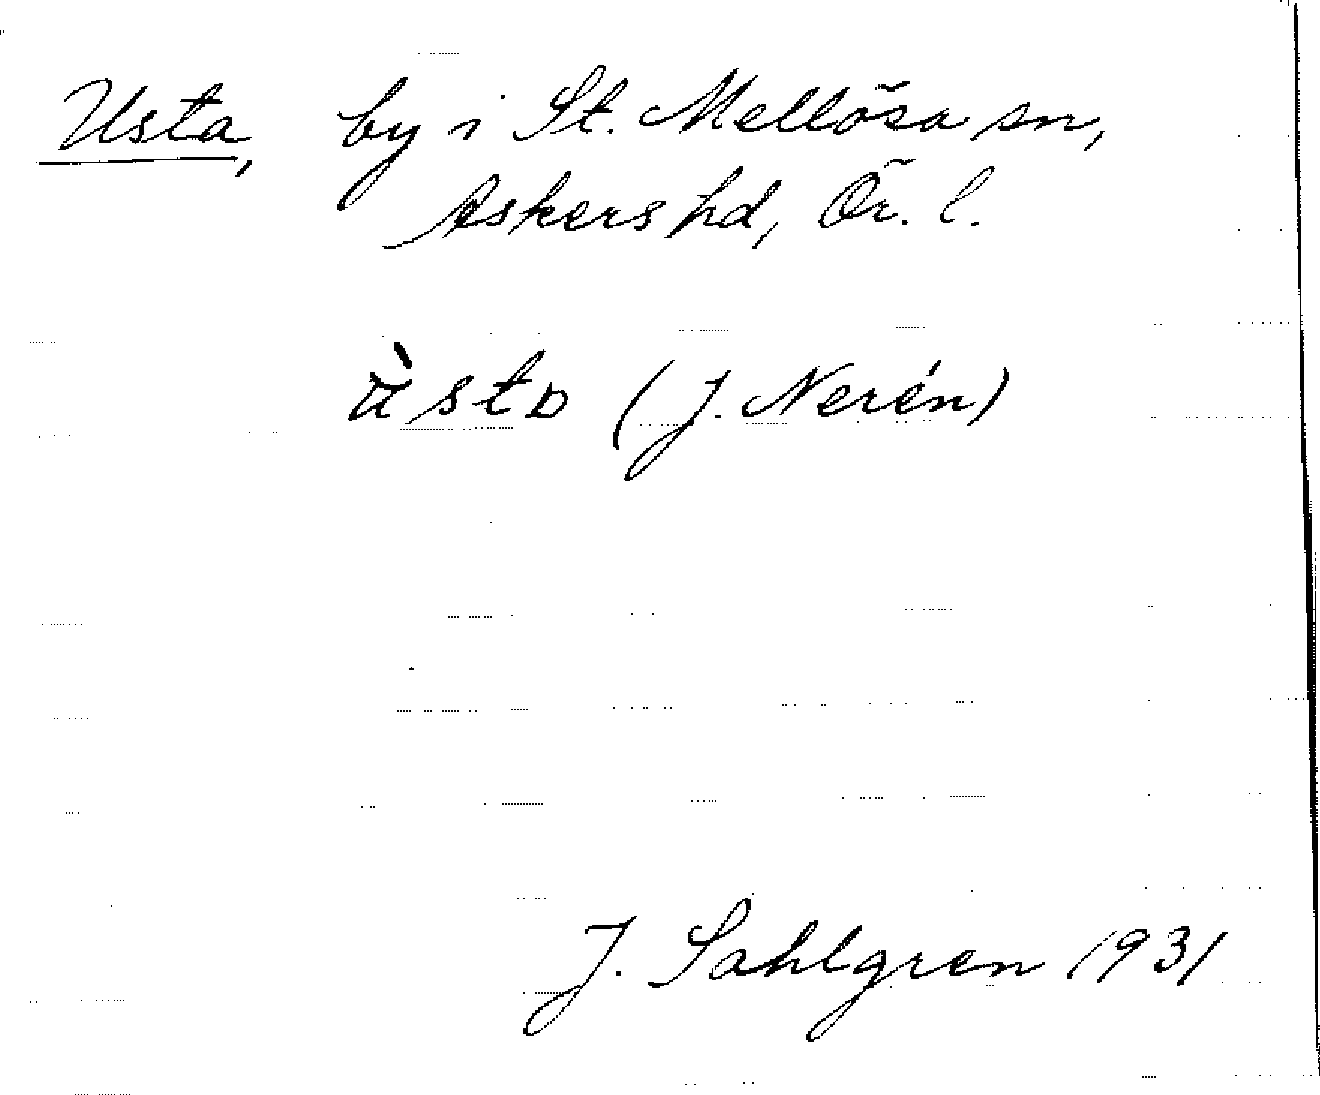 Usta, by i St. Mellösa sn,
Askers hd, Ör. l.
ǜsta (J. Nerén)
J. Sahlgren 1931